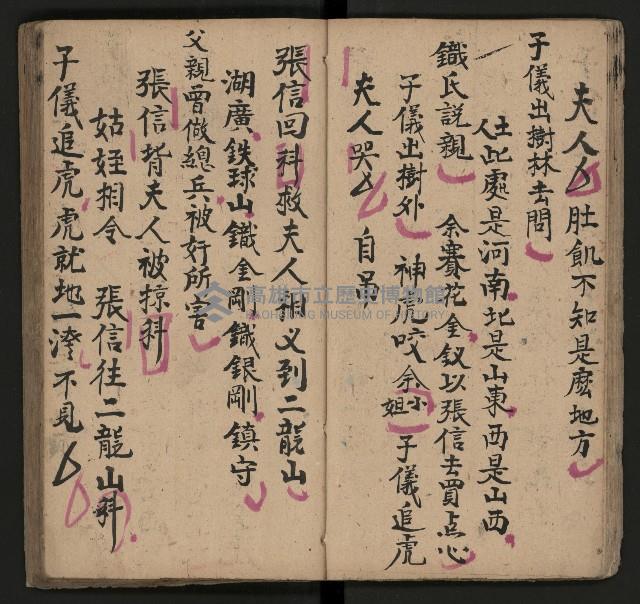 夫人厶肚飢不知是麽地方
子儀出樹林去問
土人此處是河南北是山東西是山西
鐡氏説親 余賽花金釵以張信去買点心
子儀出樹外 神虎咬余小姐子儀追虎
夫人哭厶自
張信回科救夫人相义到二龍山
湖廣鉄球山鐡金剛鐡銀剛鎮守
父親曾做總兵被奸所害
張信背夫人被掠科
姑姪相令 張信往二龍山科
子儀追虎虎就地一滚不見厶
高雄市立歷史博物館
KAOHSIUNG MUSEUM OF HISTORY